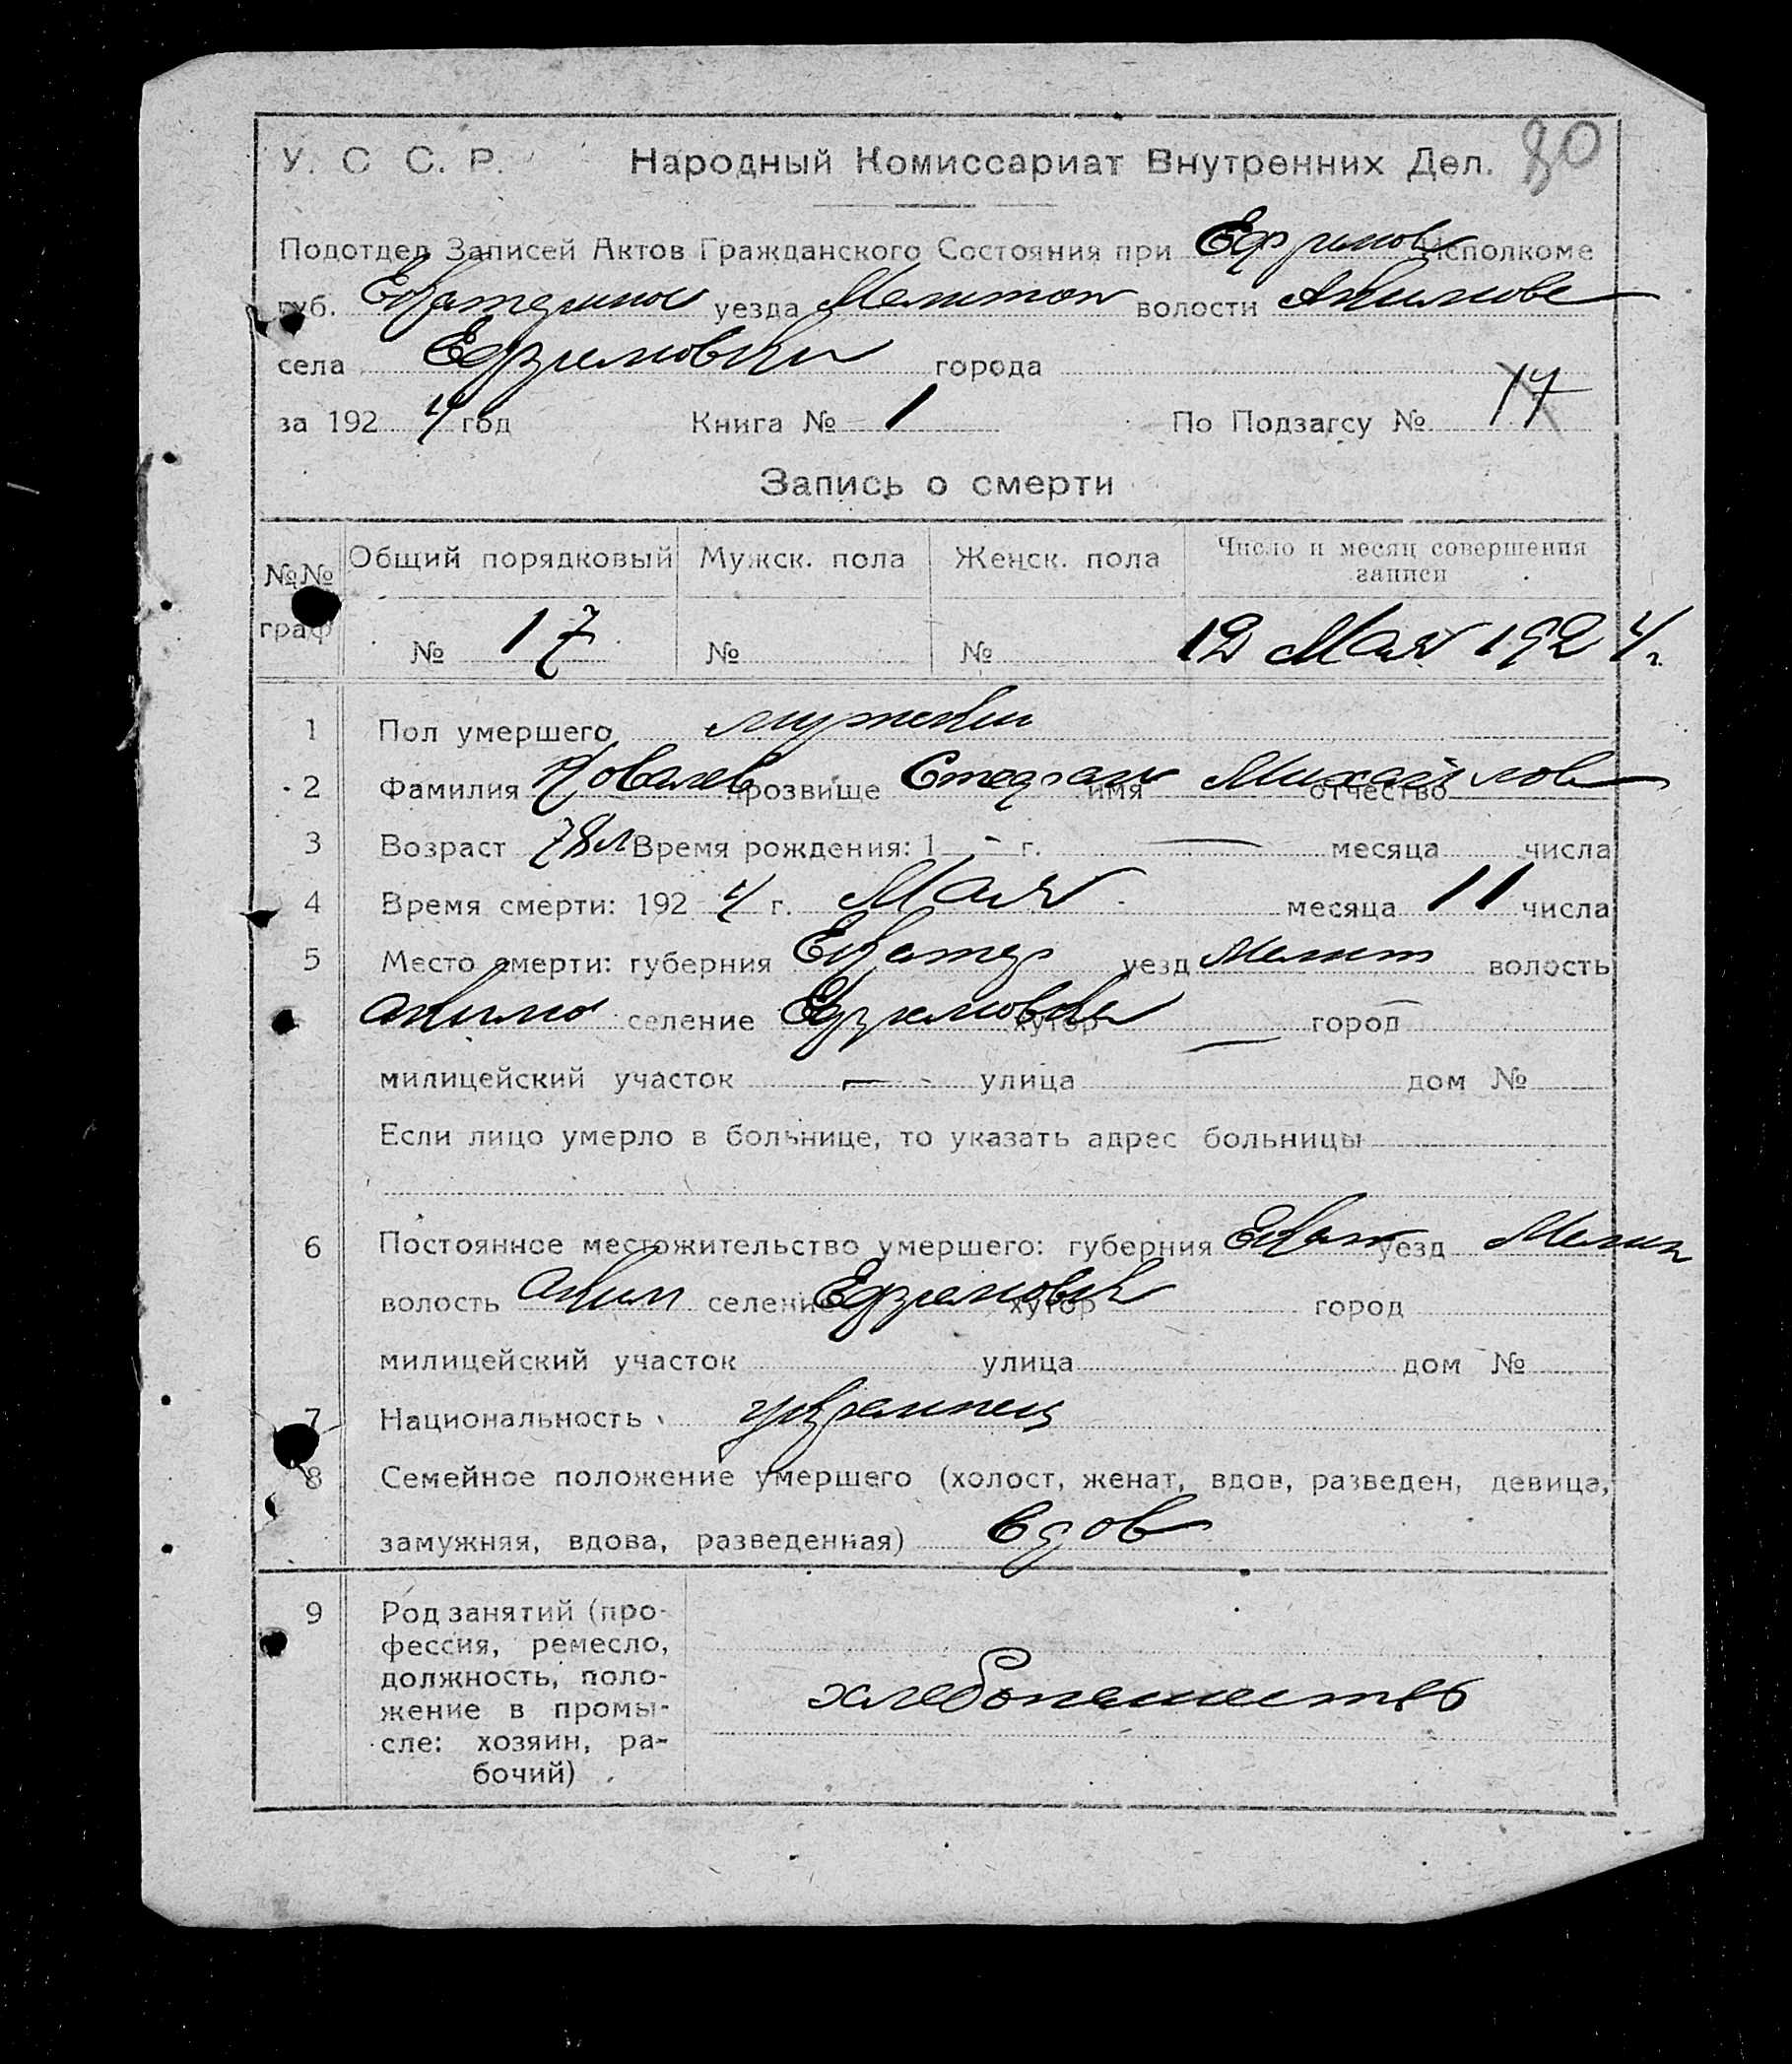 80
У. С. С. Р. Народный Комиссариат Внутренних Дел.
Подотдел Записей Актов Гражданского Состояния при Ефремов Исполкоме
губ. Екатеринос уезда Мелитоп волости Акимове
села Ефремовки города
за 1924 год Книга № 1 По Подзагсу № 17
Запись о смерти
№№ граф Общий порядковый Мужск. пола Женск. пола Число и месяц совершения записи
№ 17 № № 12 Мая 1924 г.
1 Пол умершего мужеский
2 Фамилия Ковалев прозвище Стефан имя Михайлов отчество
3 Возраст 78 л Время рождения: 1 - г. — месяца числа
4 Время смерти: 1924 г. Мая месяца 11 числа
5 Место смерти: губерния Екатер уезд Мелит волость
Акимо селение Ефремовка хутор — город —
милицейский участок — улица дом №
Если лицо умерло в больнице, то указать адрес больницы
6 Постоянное местожительство умершего: губерния Екат уезд Мелит
волость Аким селение Ефремовк хутор город
милицейский участок улица дом №
7 Национальность украинец
8 Семейное положение умершего (холост, женат, вдов, разведен, девица,
замужняя, вдова, разведенная) вдов
9 Род занятий (про-
фессия, ремесло,
должность, поло-
жение в промы-
сле: хозяин, ра-
бочий)
хлебопашество